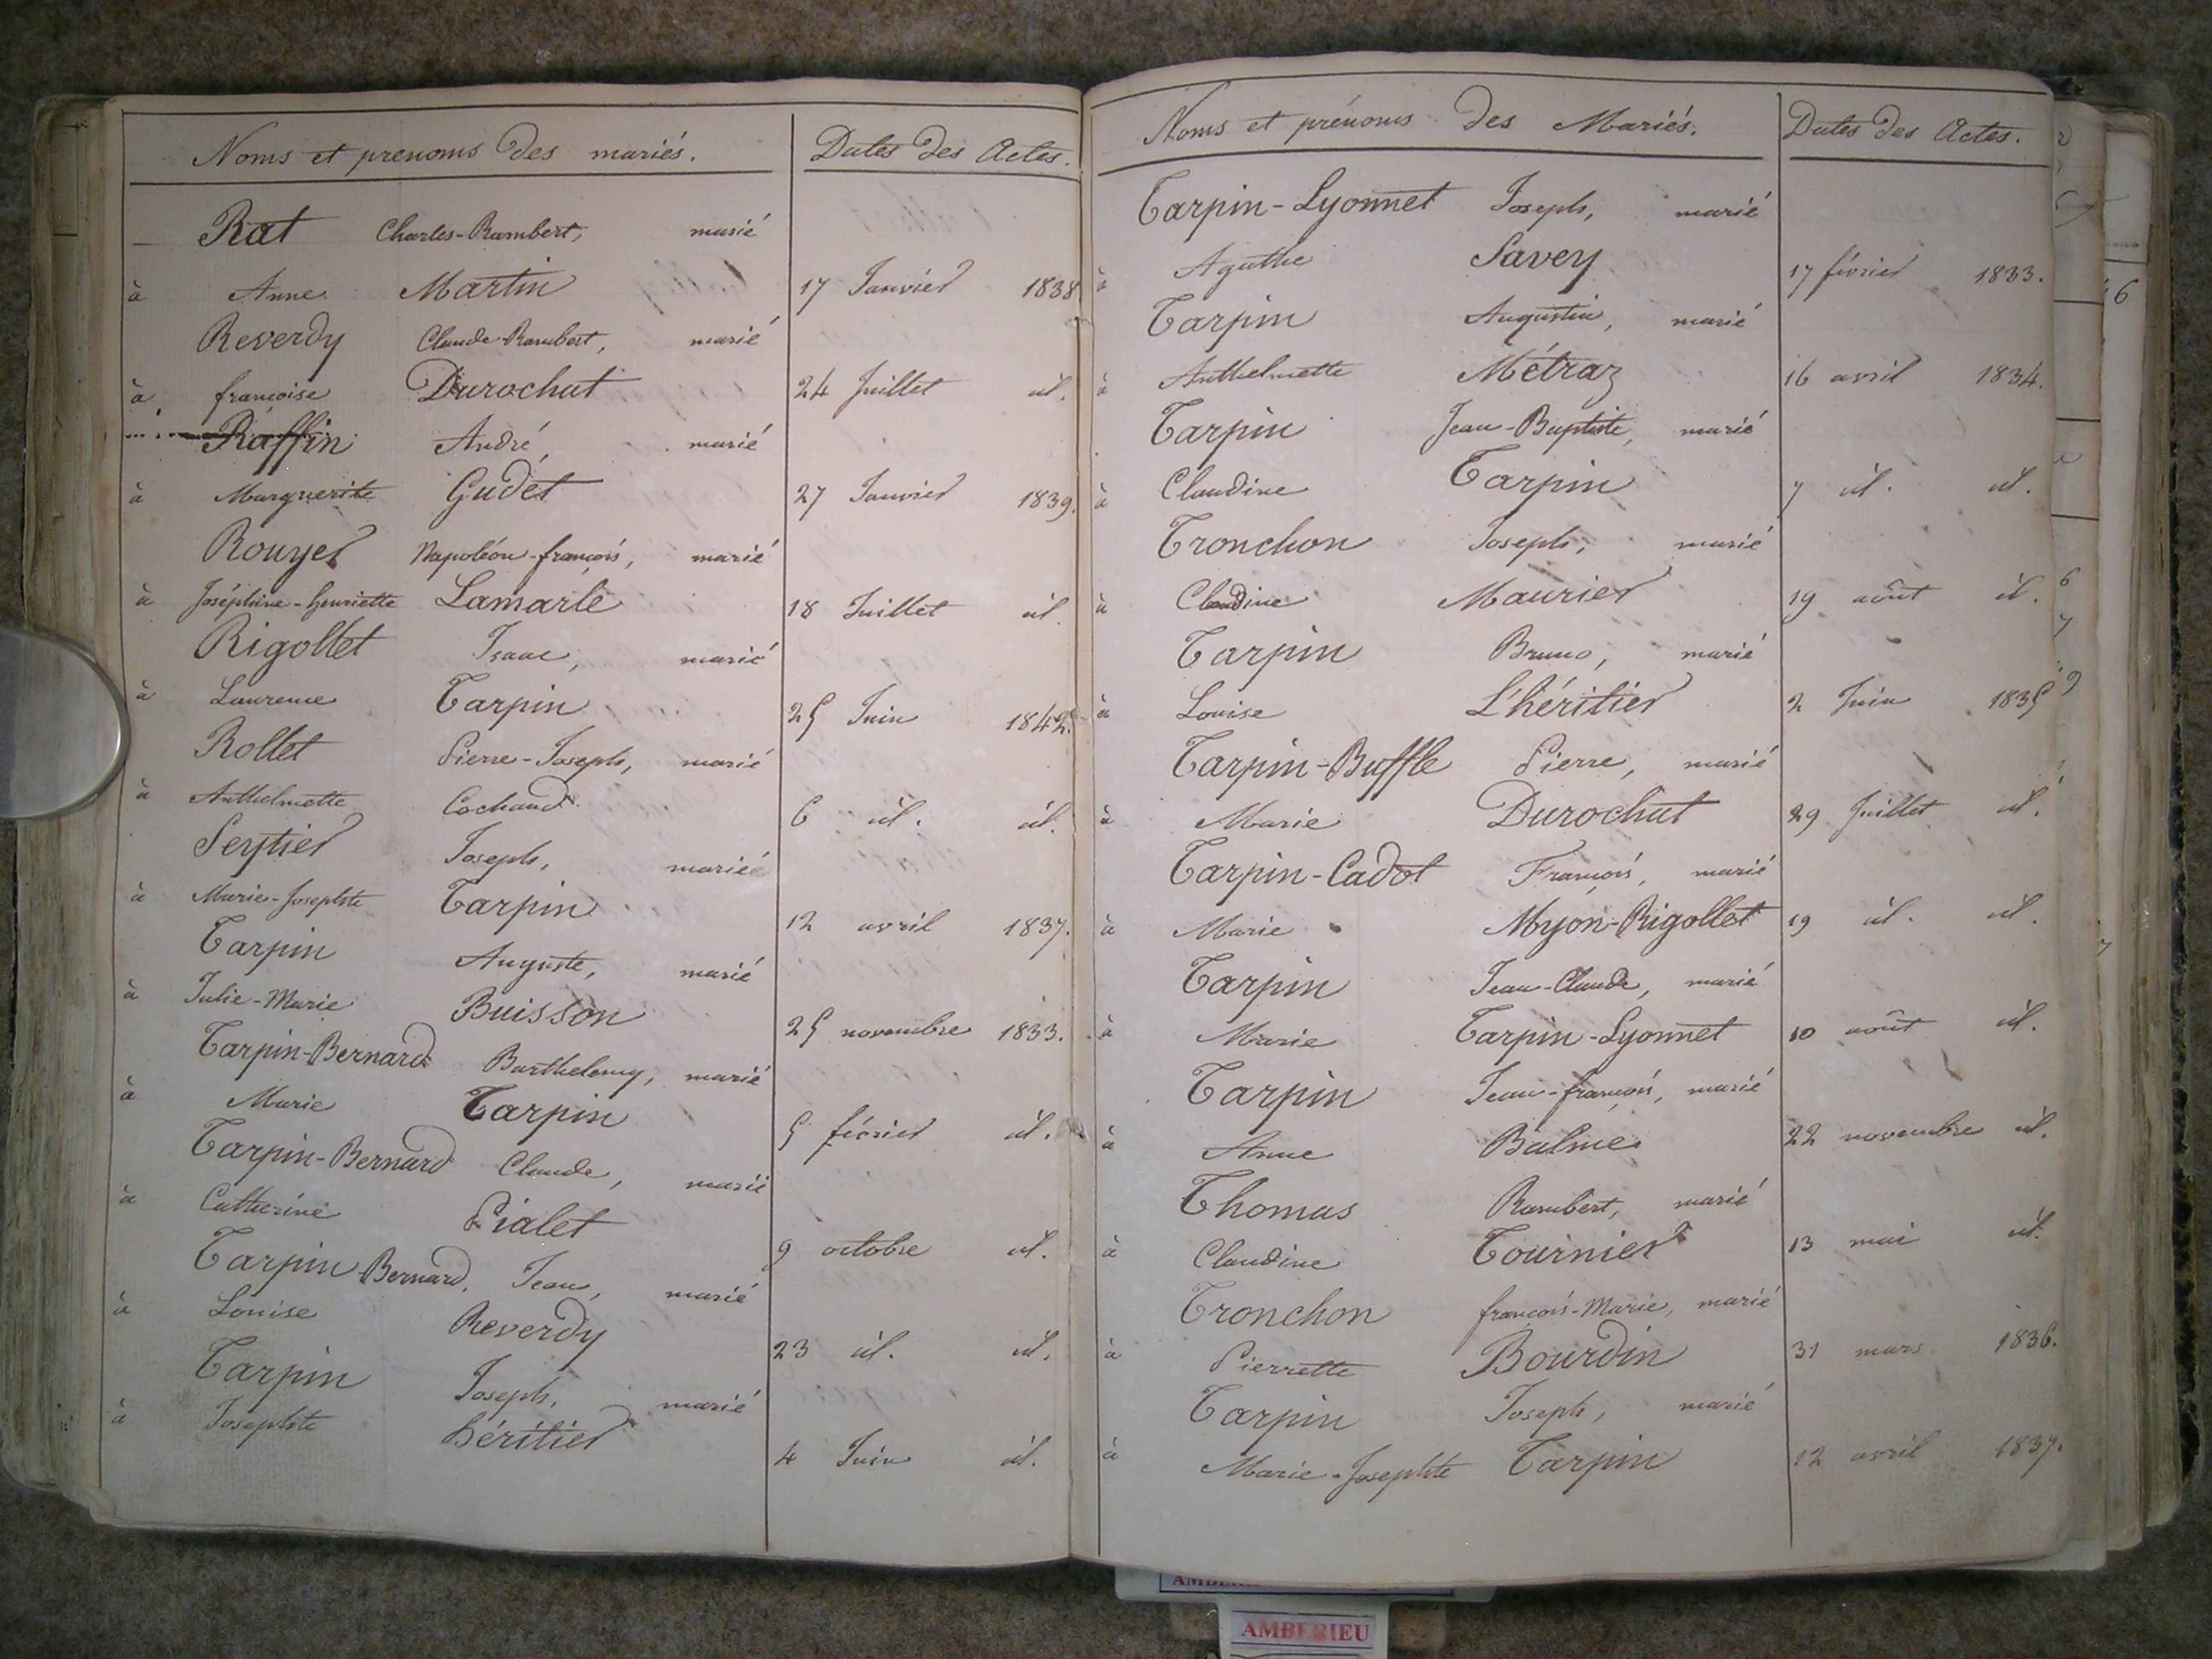 Noms et prenoms des mariés. Dates des Actes.
Rat Charles-Rambert, marié
à Anne Martin 17 Janvier 1838
Reverdy Claude-Rambert, marié
à françoise Durochat 24 Juillet id.
Raffin André, marié
à Marguerite Gudet 27 Janvier 1839.
Rouyer Napoléon-françois, marié
à Joséphine-henriette Lamarle 18 Juillet id.
Rigollet Isaac, marié
à Laurence Tarpin 25 Juin 1842.
Rollet Pierre-Joseph, marié
à Anthelmette Cochand 6 id. id.
Seytier Joseph, marié
à Marie-Josephte Tarpin 12 avril 1837.
Tarpin Auguste, marié
à Julie-Marie Buisson 25 novembre 1833.
Tarpin-Bernard Barthelemy, marié
à Marie Tarpin 5 février id.
Tarpin-Bernard Claude, marié
à Catherine Pialet 9 octobre id.
Tarpin Bernard, Jean, marié
à Louise Reverdy 23 id. id.
Tarpin Joseph, marié
à Josephte héritier 4 Juin id.
Noms et prénoms des Mariés. Dates des Actes.
Tarpin-Lyonnet Joseph, marié
à Agathe Savey 17 février 1833.
Tarpin Augustin, marié
à Anthelmette Métraz 16 avril 1834.
Tarpin Jean-Baptiste, marié
à Claudine Tarpin 7 id. id.
Tronchon Joseph, marié
à Claudine Maurier 19 août id.
Tarpin Bruno, marié
à Louise L'héritier 2 Juin 1835
Tarpin-Buffle Pierre, marié
à Marie Durochat 29 Juillet id.
Tarpin-Cadot François, marié
à Marie Myon-Rigollet 19 id. id.
Tarpin Jean-Claude, marié
à Marie Tarpin-Lyonnet 10 août id.
Tarpin Jean-françois, marié
à Anne Balme 22 novembre id.
Thomas Rambert, marié
à Claudine Tournier 13 mai id.
Tronchon françois-Marie, marié
à Pierrette Bourdin 31 mars 1836.
Tarpin Joseph, marié
à Marie-Josephte Tarpin 12 avril 1837.
AMBERIEU